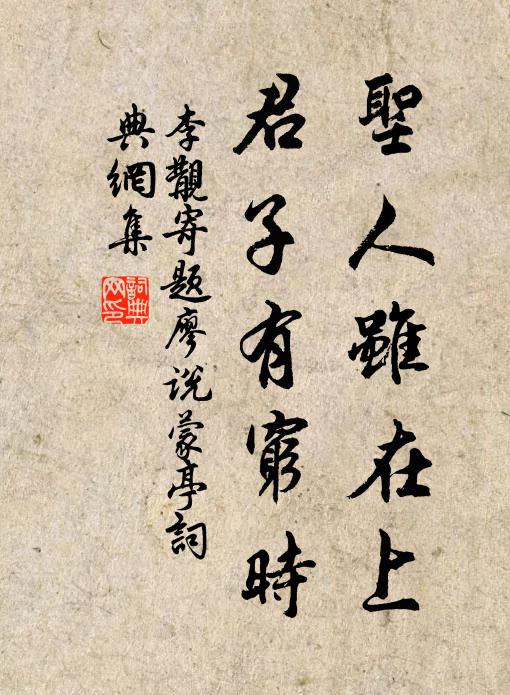 聖人雖在上
君子有窮時
李覯寄題廖說蒙亭詞
典網集
詞典
网印